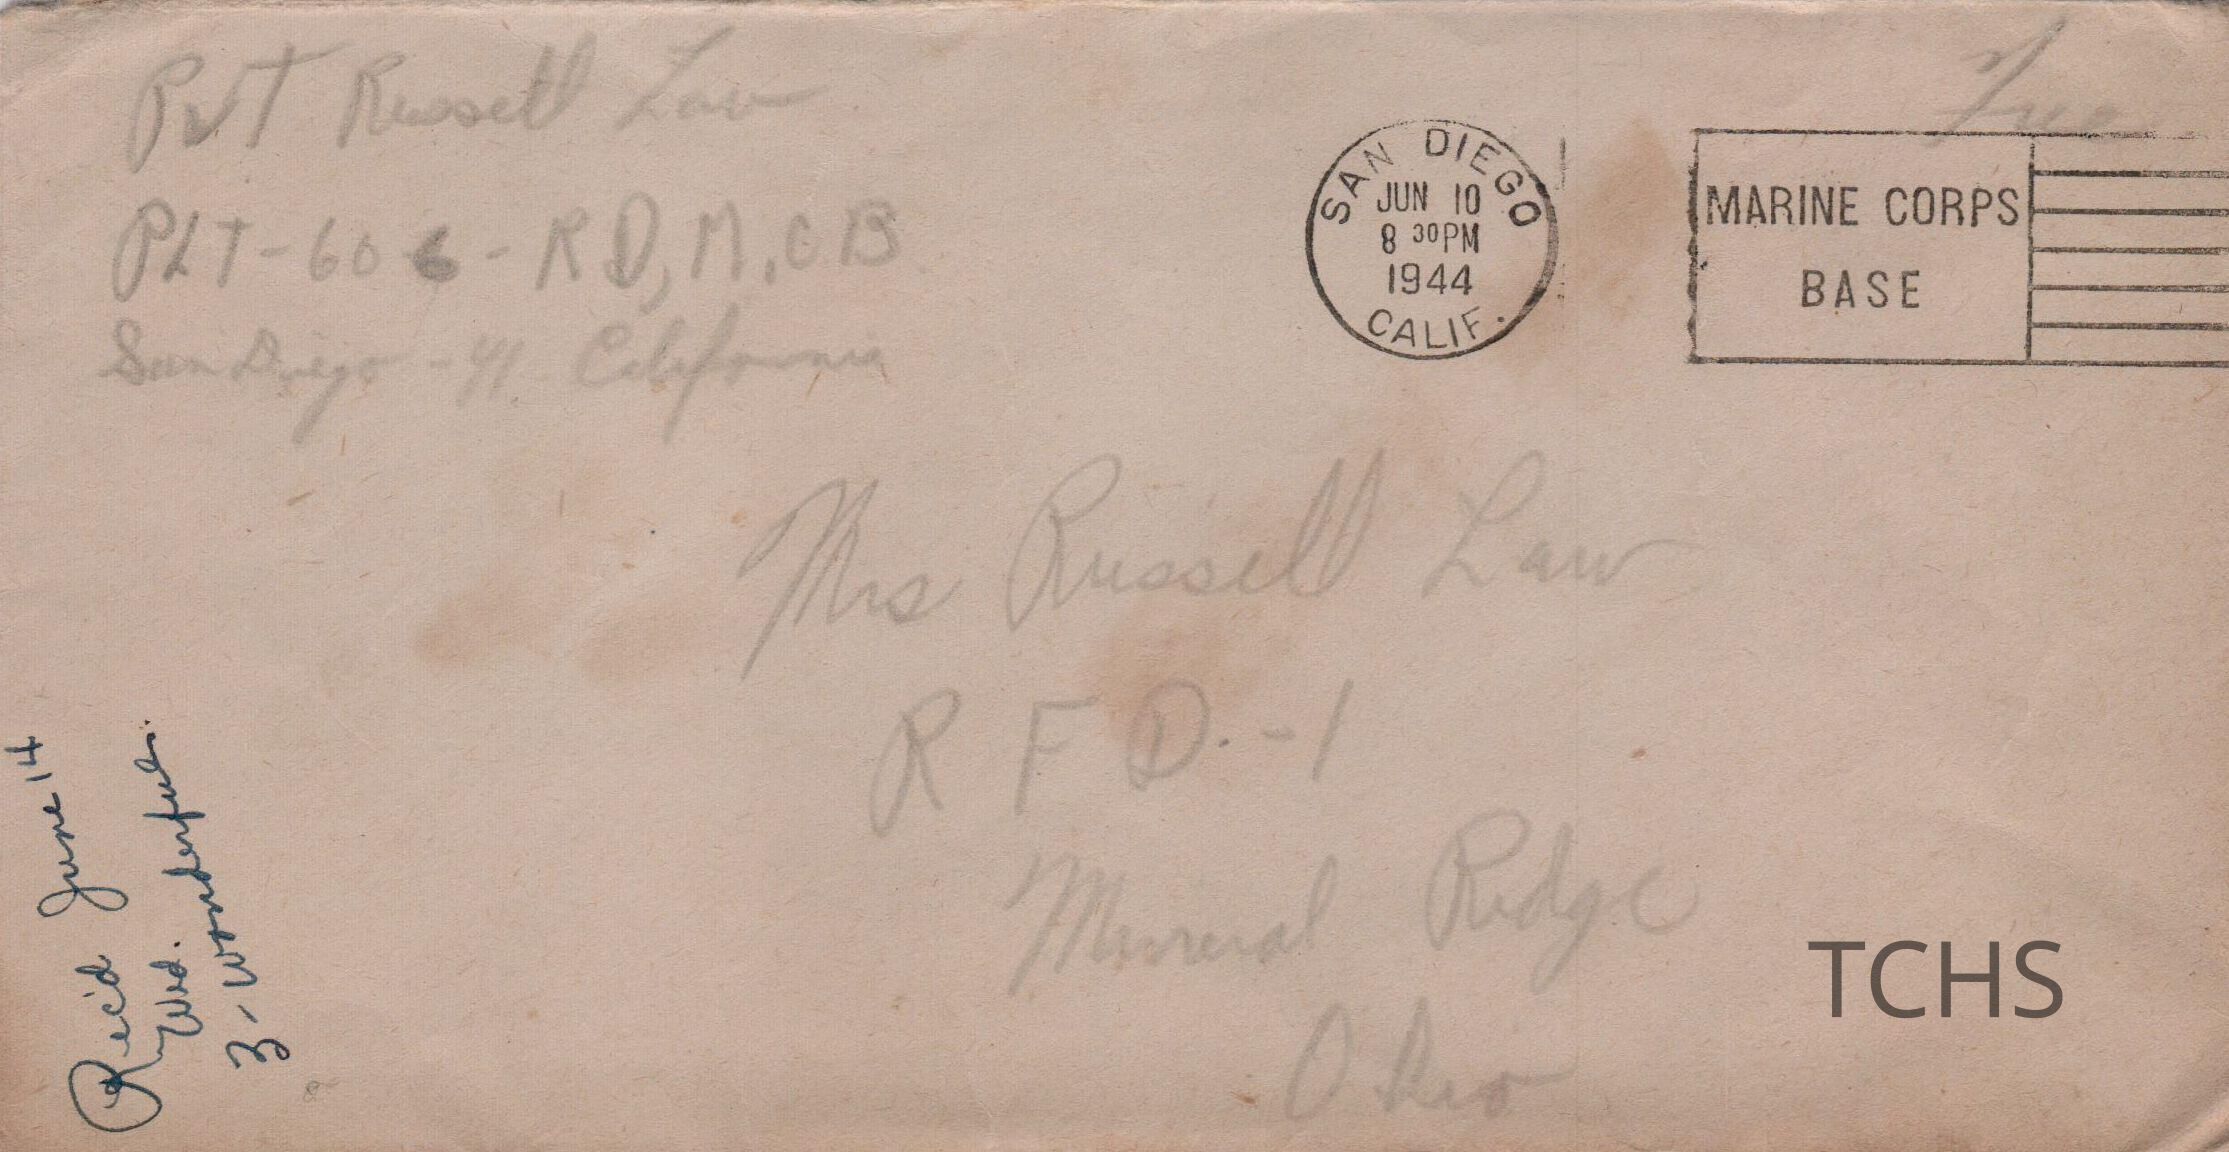 Pvt Russell Law
PLT-606-RD, M.C.B
San Diego - 41 California
Free
SAN DIEGO
JUN 10
8 30PM
1944
CALIF.
MARINE CORPS
BASE
Mrs Russell Law
R F D. - 1
Mineral Ridge
Ohio
Rec'd June 14
Wed.
3 - Wonderful.
TCHS